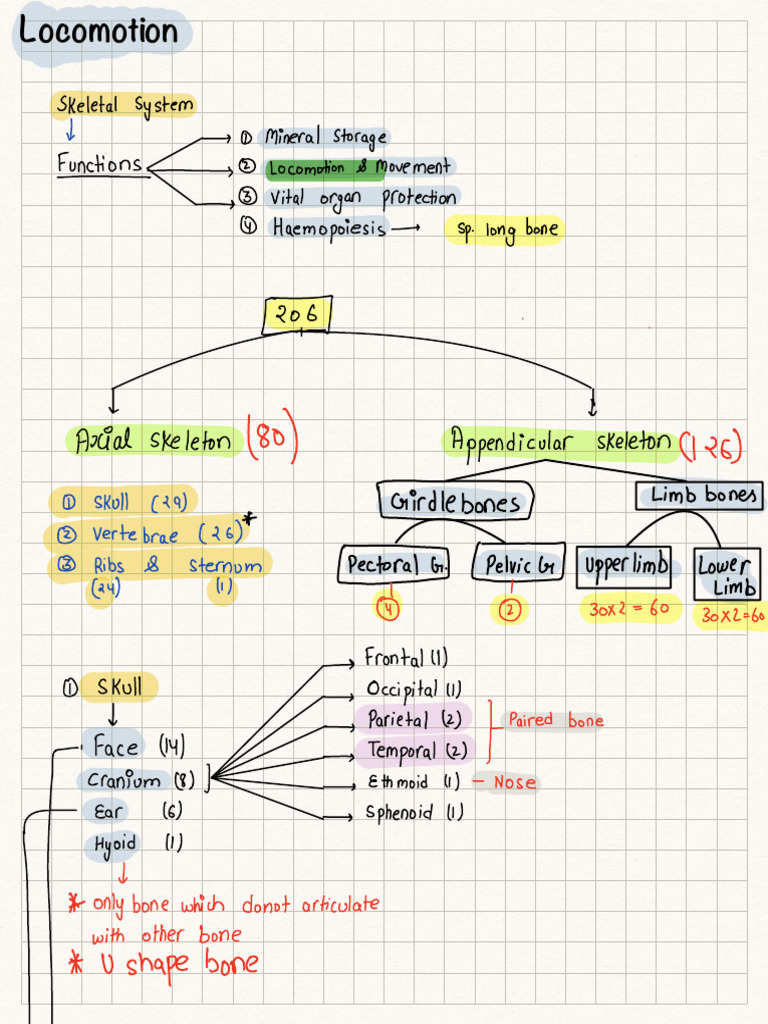 Locomotion
Skeletal System
Functions
① Mineral Storage
② Locomotion & Movement
③ Vital organ protection
④ Haemopoiesis → sp. long bone
206
Axial skeleton (80)
Appendicular skeleton (126)
① Skull (29)
② Vertebrae (26)*
③ Ribs & sternum
(24) (1)
Girdle bones
Limb bones
Pectoral G.
Pelvic G
Upper limb
Lower Limb
④
②
30x2 = 60
30x2=60
① Skull
Face (14)
Cranium (8)
Ear (6)
Hyoid (1)
Frontal (1)
Occipital (1)
Parietal (2)
Temporal (2)
Paired bone
Ethmoid (1) – Nose
Sphenoid (1)
* only bone which donot articulate
with other bone
* U shape bone